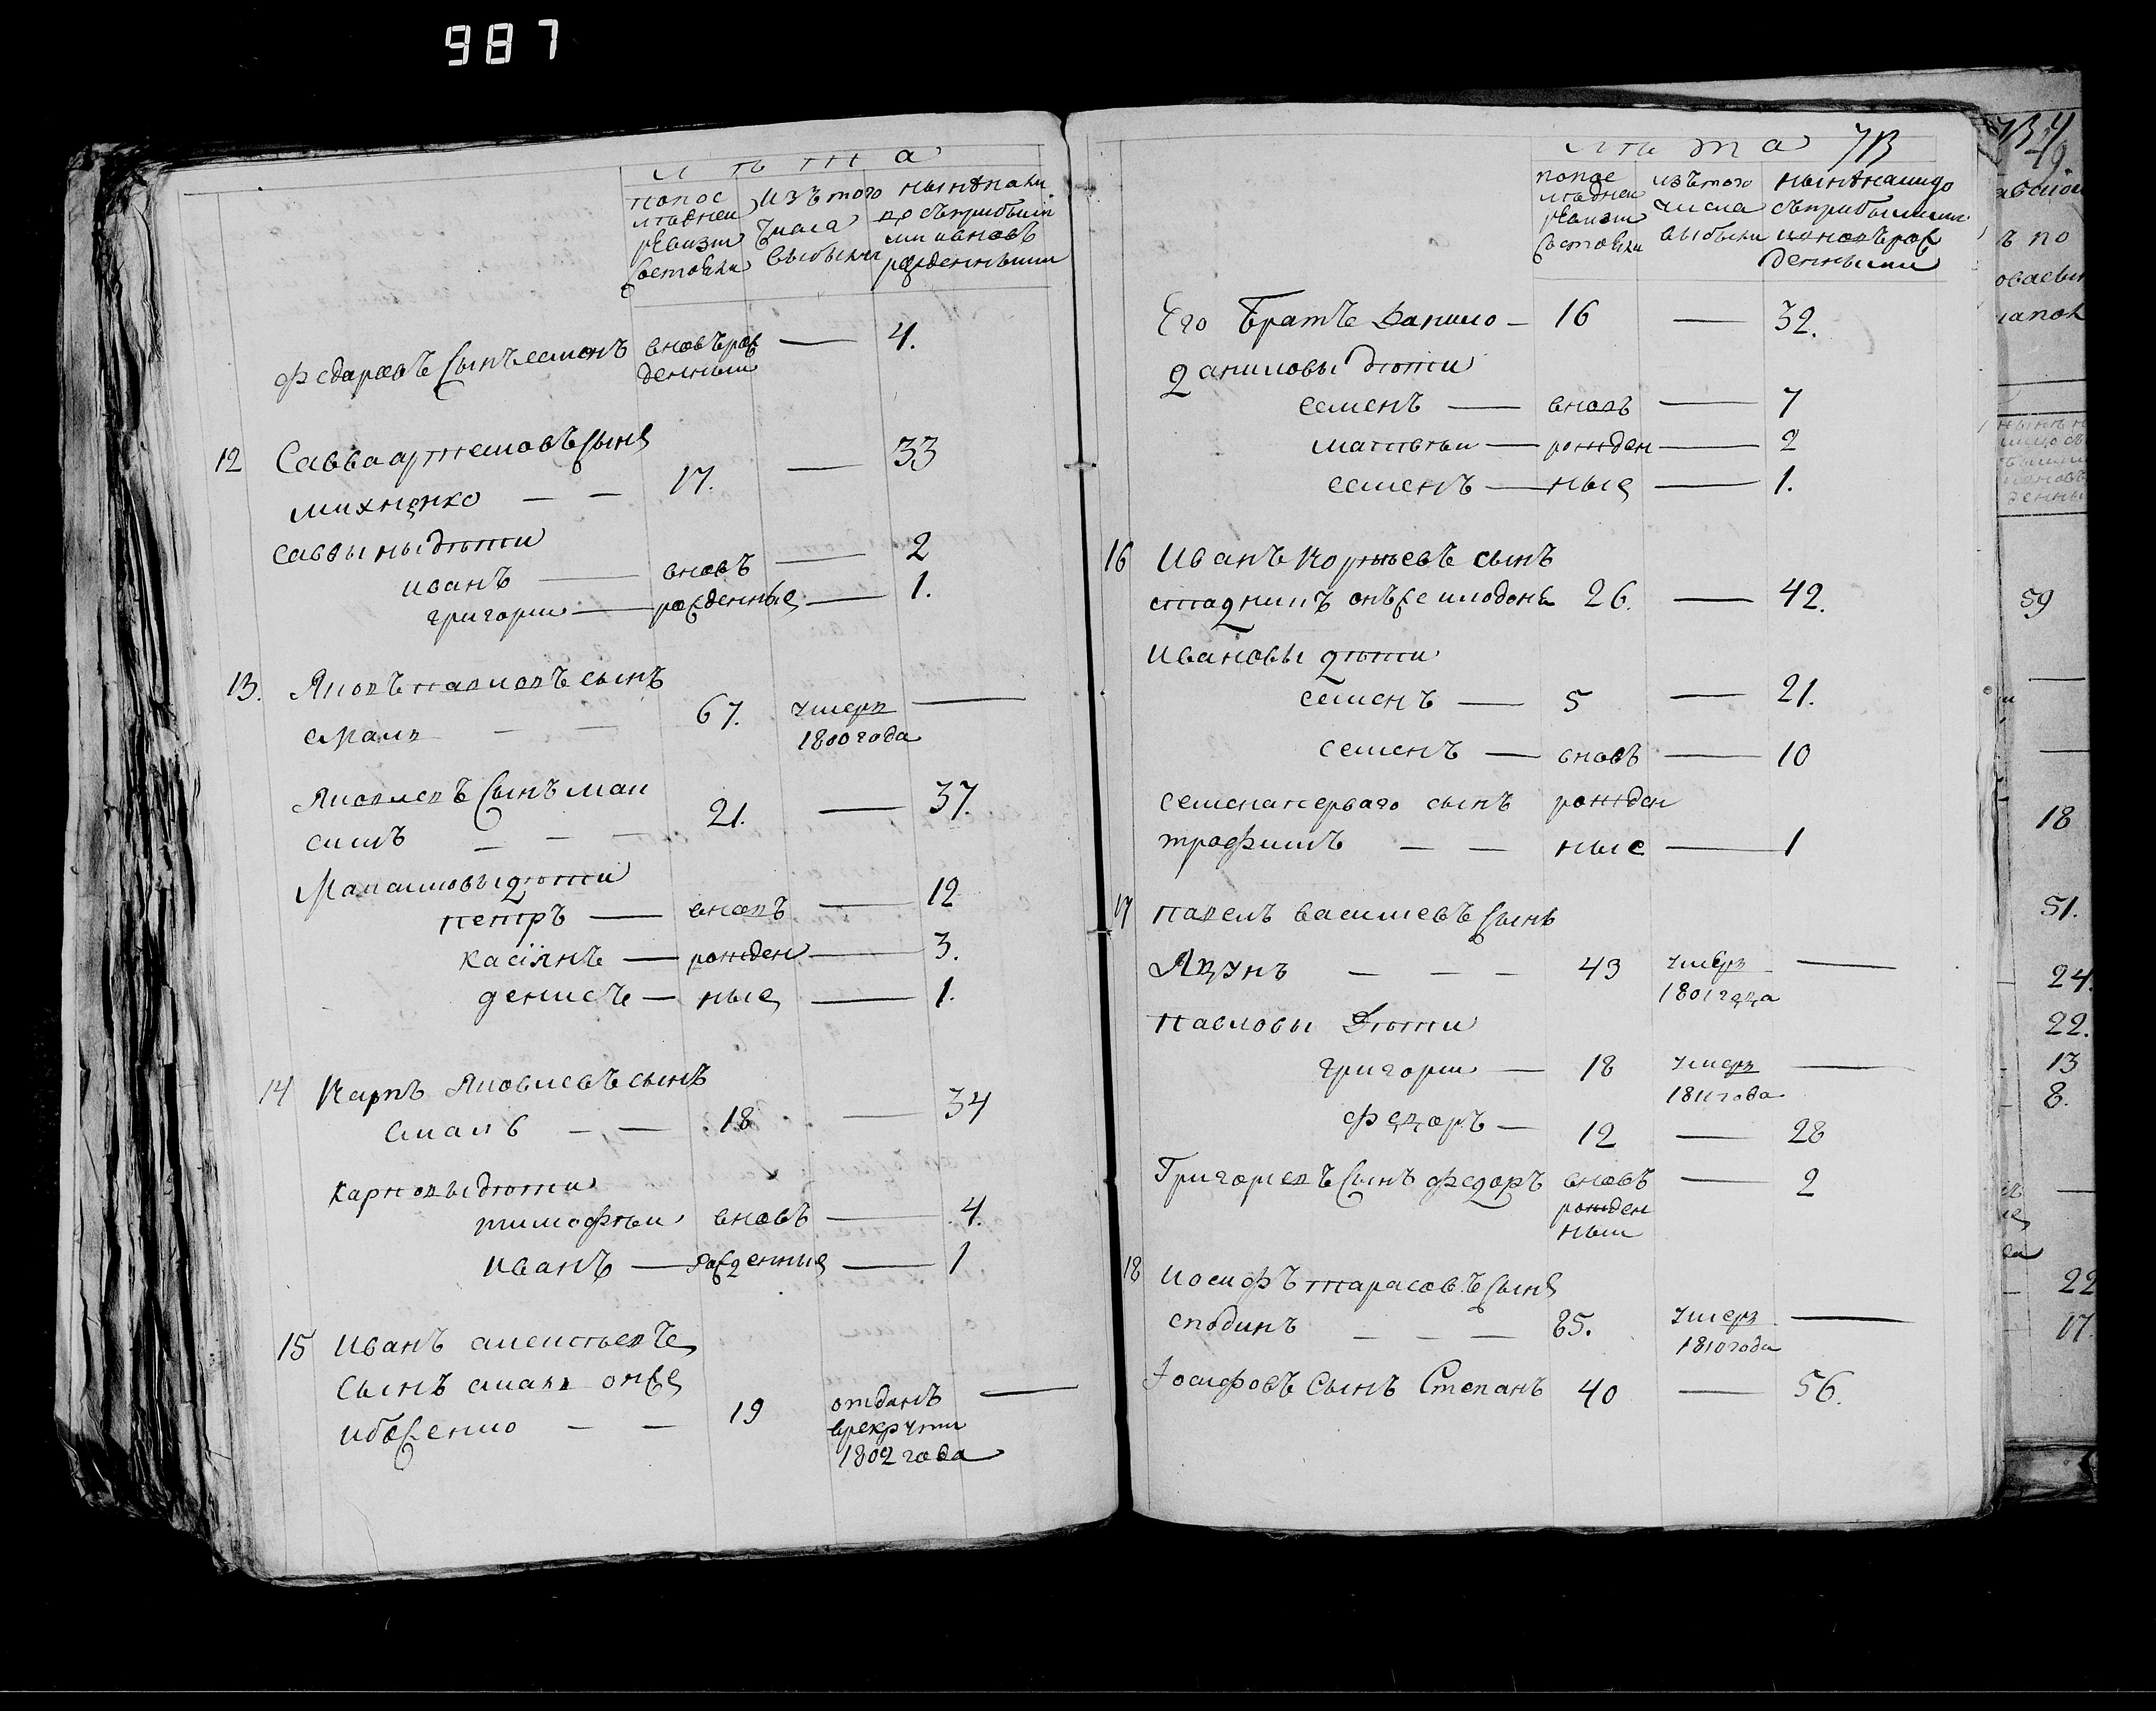 987
лѣта
попос лѣдней ревизи состояли
изътого числа выбыли
нынѣнали цо съприбылы ми ивновь рожденными
Федаровъ сынъ семенъ вновърож денныи — 4.
12 Савва артемовъ сынъ
михненко — — 17. — 33
саввины дѣти
иванъ — вновъ — 2
григории — рожденные — 1.
13. Яковъ павловъ сынъ
смаль — — 67. умеръ 1800 года —
Яковлевъ сынъ мак
симъ — — 21. — 37.
Макаимовы дѣти
петръ — вновъ — 12
касіянъ — рожден — 3.
денисъ — ные — 1.
14 Карпъ Яковлевъ сынъ
смаль — — 18 — 34
карповы дѣти
тимофѣи вновъ — 4.
иванъ — рожденные — 1
15 иванъ алексѣевъ
сынъ смаль онже
ибоженко — — 19 отданъ врекруты 1802 года —
лѣта 713
попос лѣднеи ревизи состояли
изътого числа выбыли
нынѣналицо съприбылыми ивновърож денными
Его братъ Данило — 16 — 32.
даниловы дѣти
семенъ — вновъ — 7
матвѣи — рожден — 2
семенъ — ные — 1.
16 иванъ Корнѣевъ сынъ
стадникъ онъже 26. — 42.
ивановы дѣти
семенъ — 5 — 21.
семенъ — вновъ — 10
семенаперваго сынъ рожден
трофимъ — — ные — 1
17 павелъ василиевъ сынъ
Яцунъ — — — 43 умеръ 1801 года —
павловы дѣти
григории — 18 умеръ 1811 года —
федоръ — 12 — 28
Григориевъ сынъ федоръ вновъ рожден ныи — 2
18 иосифъ тарасовъ сынъ
сподинъ — — — 85. умеръ 1810 года —
Иосифовъ сынъ Степанъ 40 — 56.
59
18
51.
24.
22.
13
8.
22
17.